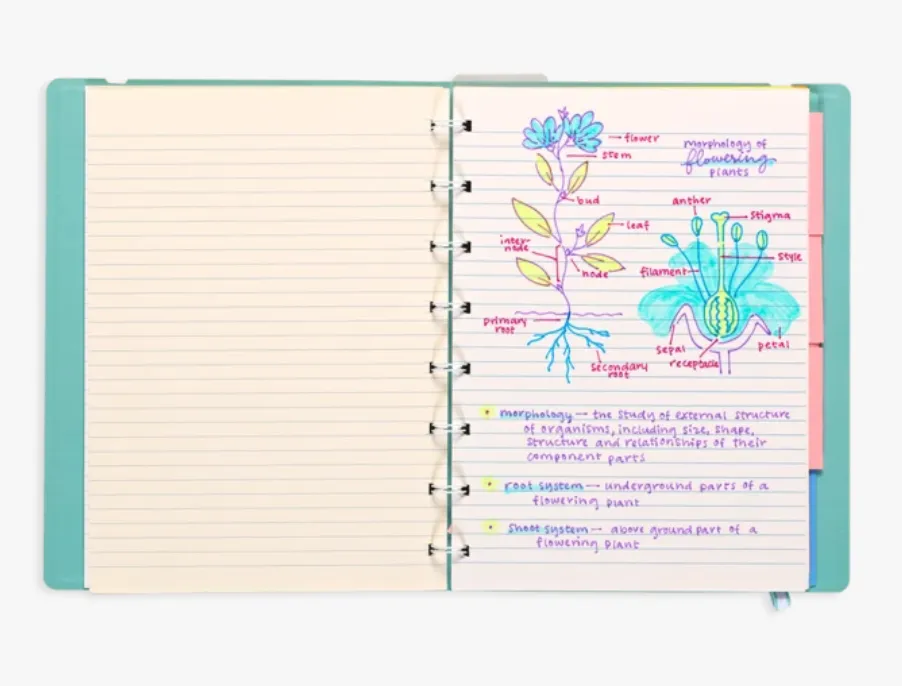 morphology of
flowering
plants
flower
stem
bud
leaf
inter-
node
node
primary
root
secondary
root
anther
stigma
style
filament
sepal
receptacle
petal
• morphology — the study of external structure
of organisms, including size, shape,
structure and relationships of their
component parts
• root system — underground parts of a
flowering plant
• shoot system — above ground part of a
flowering plant